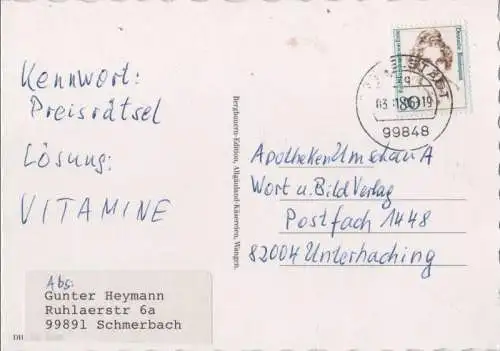 Kennwort:
Preisrätsel
Lösung:
VITAMINE
Abs:
Gunter Heymann
Ruhlaerstr 6a
99891 Schmerbach
DH
Bergbauern-Edition, Allgäuland-Käsereien, Wangen.
Deutsche Bundespost
STADT
99848
Apotheken Umschau A
Wort u. Bild Verlag
Postfach 1448
82004 Unterhaching